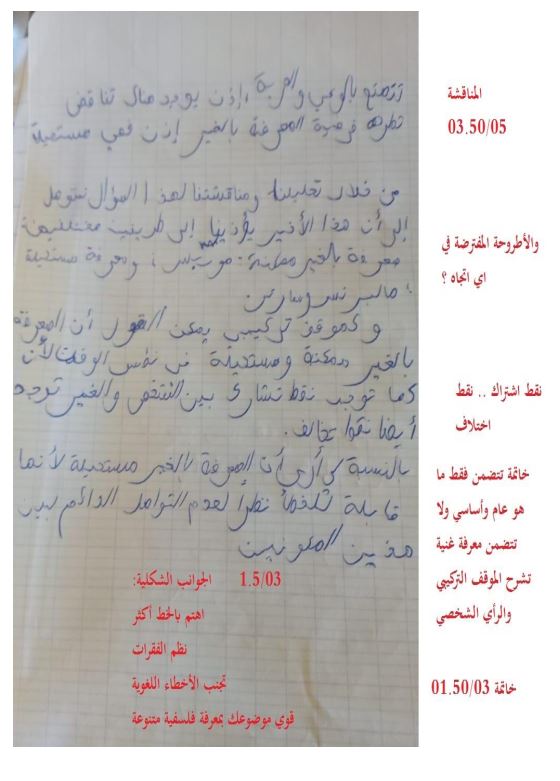 تتمتع بالوعي والحرية ، إذن يوجد هناك تناقض
تطرحه فرضية المعرفة بالغير إذن فهي مستحيلة
المناقشة
03.50/05
من خلال تحليلنا ومناقشتنا لهذا السؤال نتوصل
إلى أن هذا الأخير يؤدينا إلى طريقين مختلفين
معرفة بالغير ممكنة : ، ومعرفة مستحيلة
والأطروحة المفترضة في
اي اتجاه ؟
مالبرنس وسارتر
وكموقف تركيبي يمكن القول أن المعرفة
بالغير ممكنة ومستحيلة في نفس الوقت لأن
كما توجد نقط تشارك بين الشخص والغير توجد
أيضا نقط تخالف .
نقط اشتراك .. نقط
اختلاف
بالنسبة لي أرى أن المعرفة بالغير مستحيلة لأنها
قابلة نظرا لعدم التواصل الدائم بين
هذين المكونين
خاتمة تتضمن فقط ما
هو عام وأساسي ولا
تتضمن معرفة غنية
تشرح الموقف التركيبي
والرأي الشخصي
خاتمة 01.50/03
الجوانب الشكلية: 1.5/03
اهتم بالخط أكثر
نظم الفقرات
تجنب الأخطاء اللغوية
قوي موضوعك بمعرفة فلسفية متنوعة